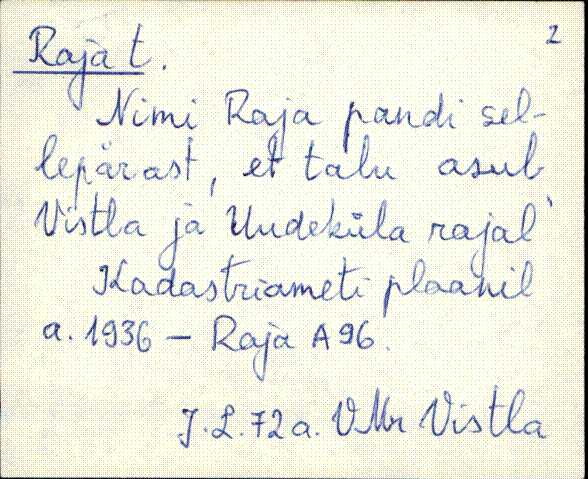 2
Raja t.
Nimi Raja pandi sel-
lepärast, et talu asub
Vistla ja Uudeküla rajal
Kadastriameti plaanil
a. 1936 – Raja A 96.
J. L. 72 a. VMr Vistla